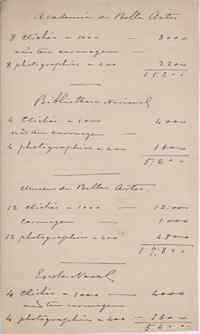 Academia de Bellas Artes
8 clichés a 1000 — 8000
não tem carruagem —
8 photographias a 400 3200
Bibliotheca Nacional
4 clichés a 1000 4000
não tem carruagem —
4 photographias a 400 1600
5600
Museu de Bellas Artes
12 clichés a 1000 — 12000
carruagem — 1000
12 photographias a 400 4800
Escola Naval
4 clichés a 1000 — 4000
não tem carruagem
4 photographias a 400 — 1600
5600